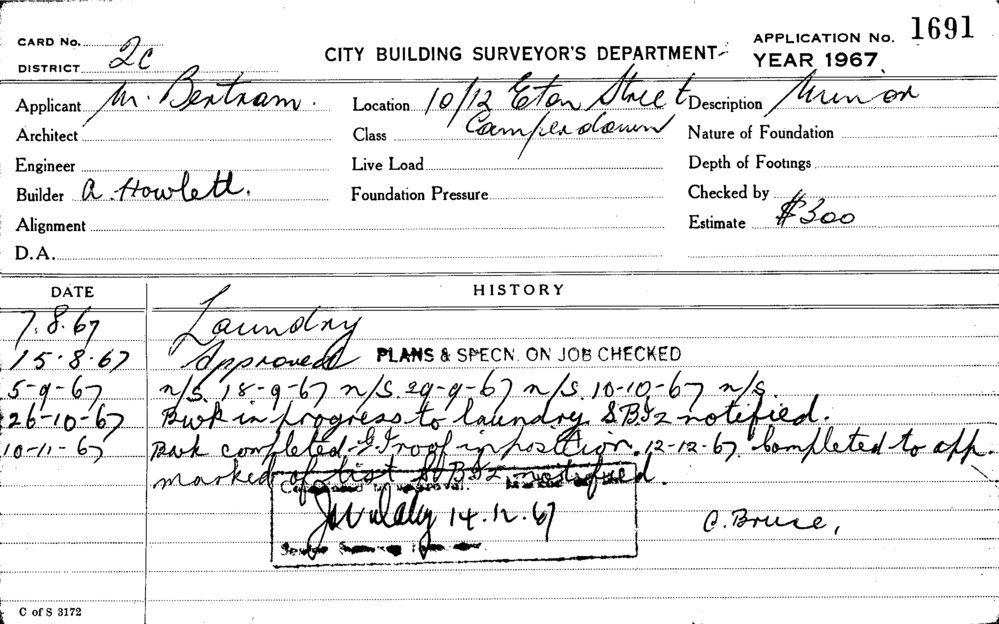 CARD No.
DISTRICT 2C
CITY BUILDING SURVEYOR'S DEPARTMENT
APPLICATION No. 1691
YEAR 1967
Applicant Mr. Bertram.
Location 10/12 Eton Street Camperdown
Description Minor
Architect
Class
Nature of Foundation
Engineer
Live Load
Depth of Footings
Builder A. Howlett.
Foundation Pressure
Checked by
Alignment
Estimate $300
D.A.
DATE HISTORY
7.8.67 Laundry
15-8-67 Approved PLANS & SPECN. ON JOB CHECKED
5-9-67 n/s. 18-9-67 n/s. 29-9-67 n/s. 10-10-67 n/s
26-10-67 Bwk in progress to laundry S.B.I2 notified.
10-11-67 Bwk completed. G.I roof in position. 12-12-67 Completed to app.
marked of list S.B.I2 notified.
14.12.67
C. Bruce,
C of S 3172